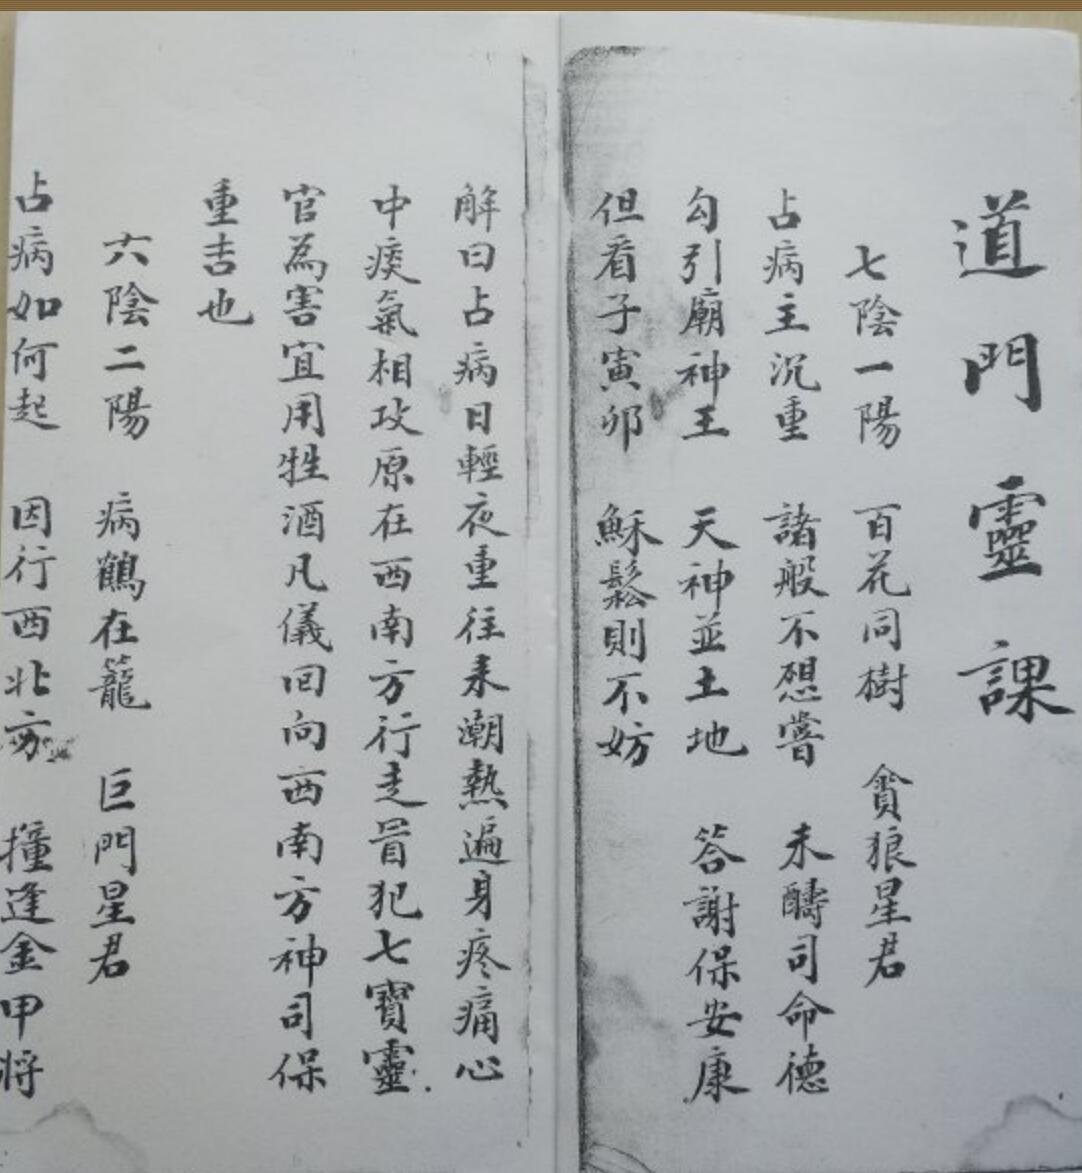 道門靈課
七陰一陽 百花同樹 貪狼星君
占病主沉重 諸般不想嘗 未醻司命德
勾引廟神王 天神並土地 答謝保安康
但看子寅卯 穌鬆則不妨
解曰占病日輕夜重往来潮熱遍身疼痛心
中痰氣相攻原在西南方行走冒犯七寶靈
官為害宜用牲酒凡儀回向西南方神司保
重吉也
六陰二陽 病鶴在籠 巨門星君
占病如何起 因行西北方 撞逢金甲将